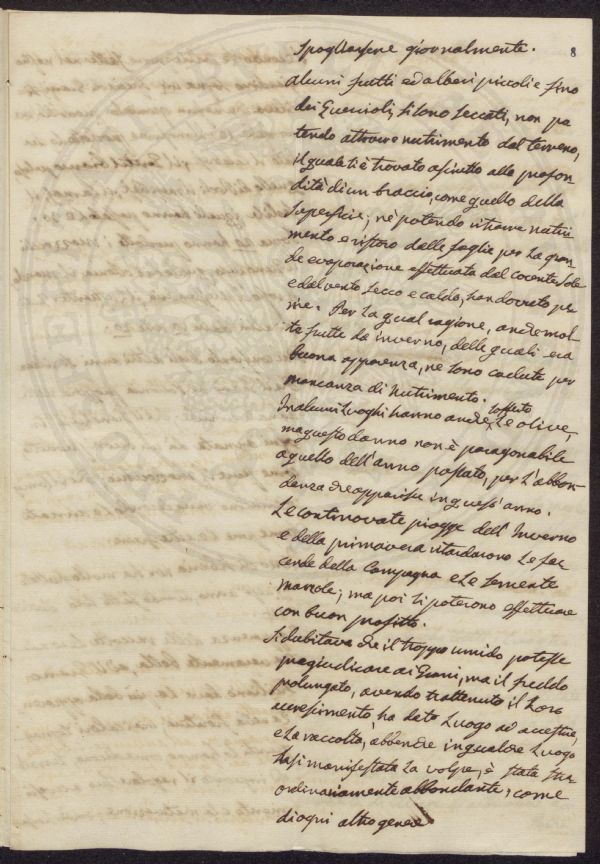 8
spogliassene giornalmente.
Alcuni frutti ed alberi piccoli e fino
dei Quercioli, si sono seccati, non po
tendo attrarre nutrimento dal terreno,
il quale si è trovato asciutto alla profon
dità di un braccio, come quello della
superficie; nè potendo ritrarre nutri
mento e ristoro delle foglie per la gran
de evaporazione effettuata dal cocente sole
e dal vento secco e caldo, han dovuto pe
rire. Per la qual ragione, anche mol
te frutte da inverno, delle quali era
buona apparenza, ne sono cadute per
mancanza di nutrimento.
In alcuni luoghi hanno anche sofferto le olive,
ma questo danno non è paragonabile
a quello dell'anno passato, per l'abbon
danza che apparisce in quest'anno.
Le continovate piogge dell'Inverno
e della primavera ritardarono le fac
cende della Campagna e le semente
marzole; ma poi si poterono effettuare
con buon profitto.
Si dubitava che il troppo umido potesse
pregiudicare ai Grani, ma il freddo
prolungato, avendo trattenuto il loro
accrescimento, ha dato luogo ad accestire,
e la raccolta, abbenche in qualche luogo
siasi manifestata la volpe, è stata stra
ordinariamente abbondante, come
di ogni altro genere